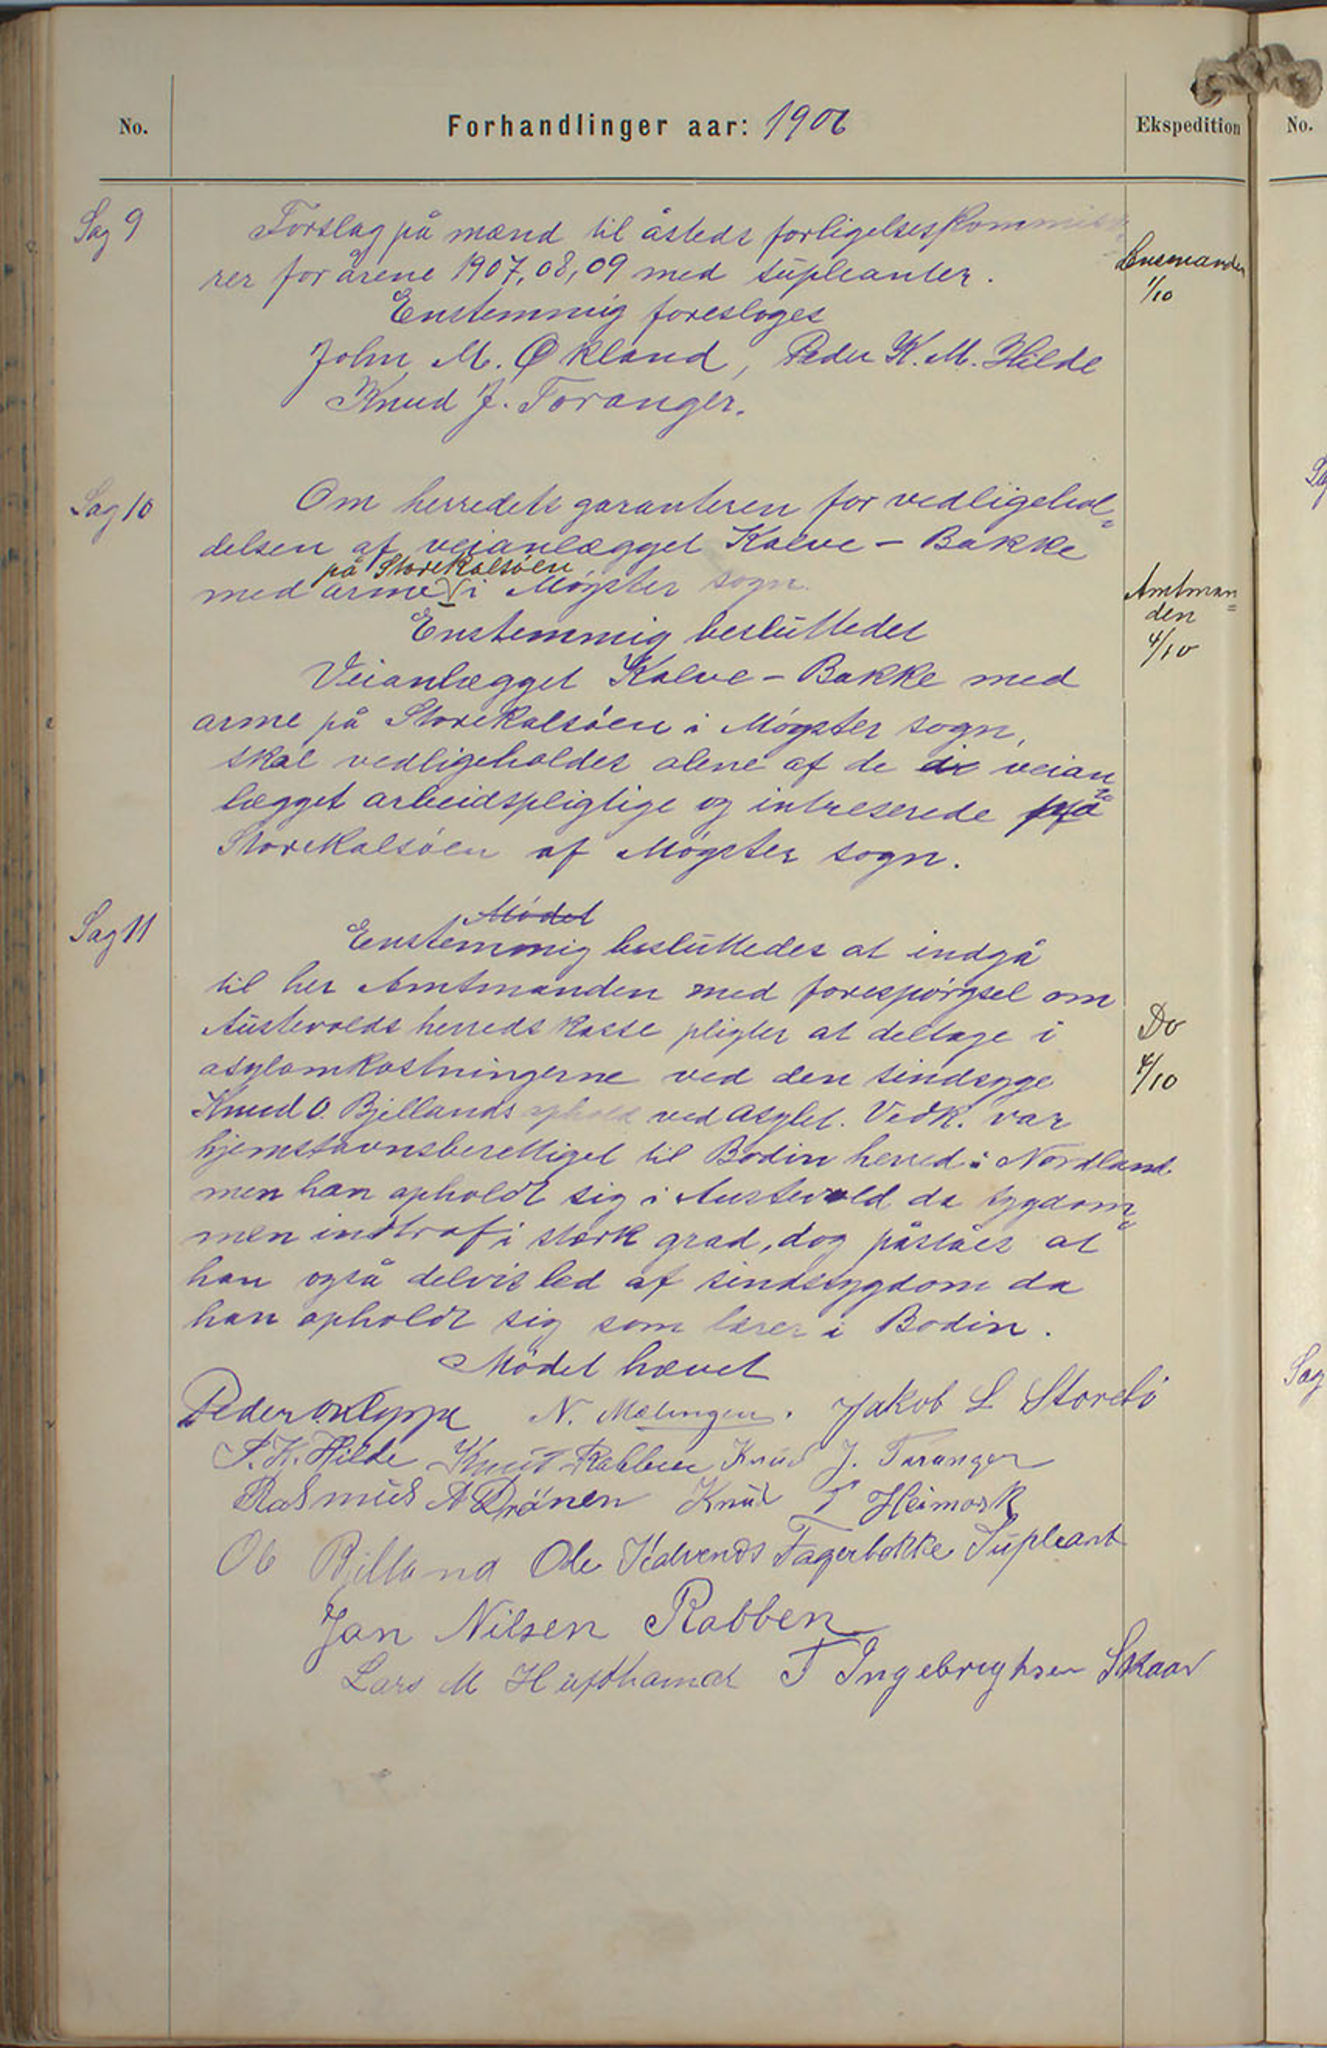 No. Forhandlinger aar: 1906 Ekspedition No.
Sag 9 Forslag på mænd til åsteds forligelseskommisæ-
rer for årene 1907, 08, 09 med supleanter. Lensmanden
1/10
Enstemmig foresloges
John M. Økland, Peder K. M. Hilde
Knud J. Toranger.
Sag 10 Om herredets garanteren for vedligehol=
delsen af veianlægget Kalve - Bakke
på Storekalsöen
med arme i Møgster sogn. Amtman=
den
4/10
Enstemmig besluttedes
Veianlægget Kalve - Bakke med
arme på Storekalsöen i Møgster sogn,
skal vedligeholdes alene af de veian=
lægget arbeidspligtige og intreserede på
Storekalsöen af Møgster sogn.
Mødet
Sag 11 Enstemmig besluttedes at indgå
til her Amtmanden med forespørgsel om
Austevolds herreds kasse pligter at deltage i Do
asylomkostningerne ved den sindsyge 4/10
Knud O. Bjellands ophold ved asylet. Vedk. var
hjemstavnsberettiget til Bodin herred i Nordland
men han opholdt sig i Austevold da sygdom=
men indtraf i stærk grad, dog påståes at
han også delvis led af sindssygdom da
han opholdt sig som lærer i Bodin.
Mödet hævet
Peder N. Mælingen. Jakob L Storebö
P. K. Hilde Knut Rabben Knud J. Toranger
Rasmus A Drönen Knud T Heimark
Bjelland Ole Kalvends Fagerbakke Supleant
Jan Nilsen Rabben
Lars M Hufthamar T Ingebrigtsen Skaar
Sag